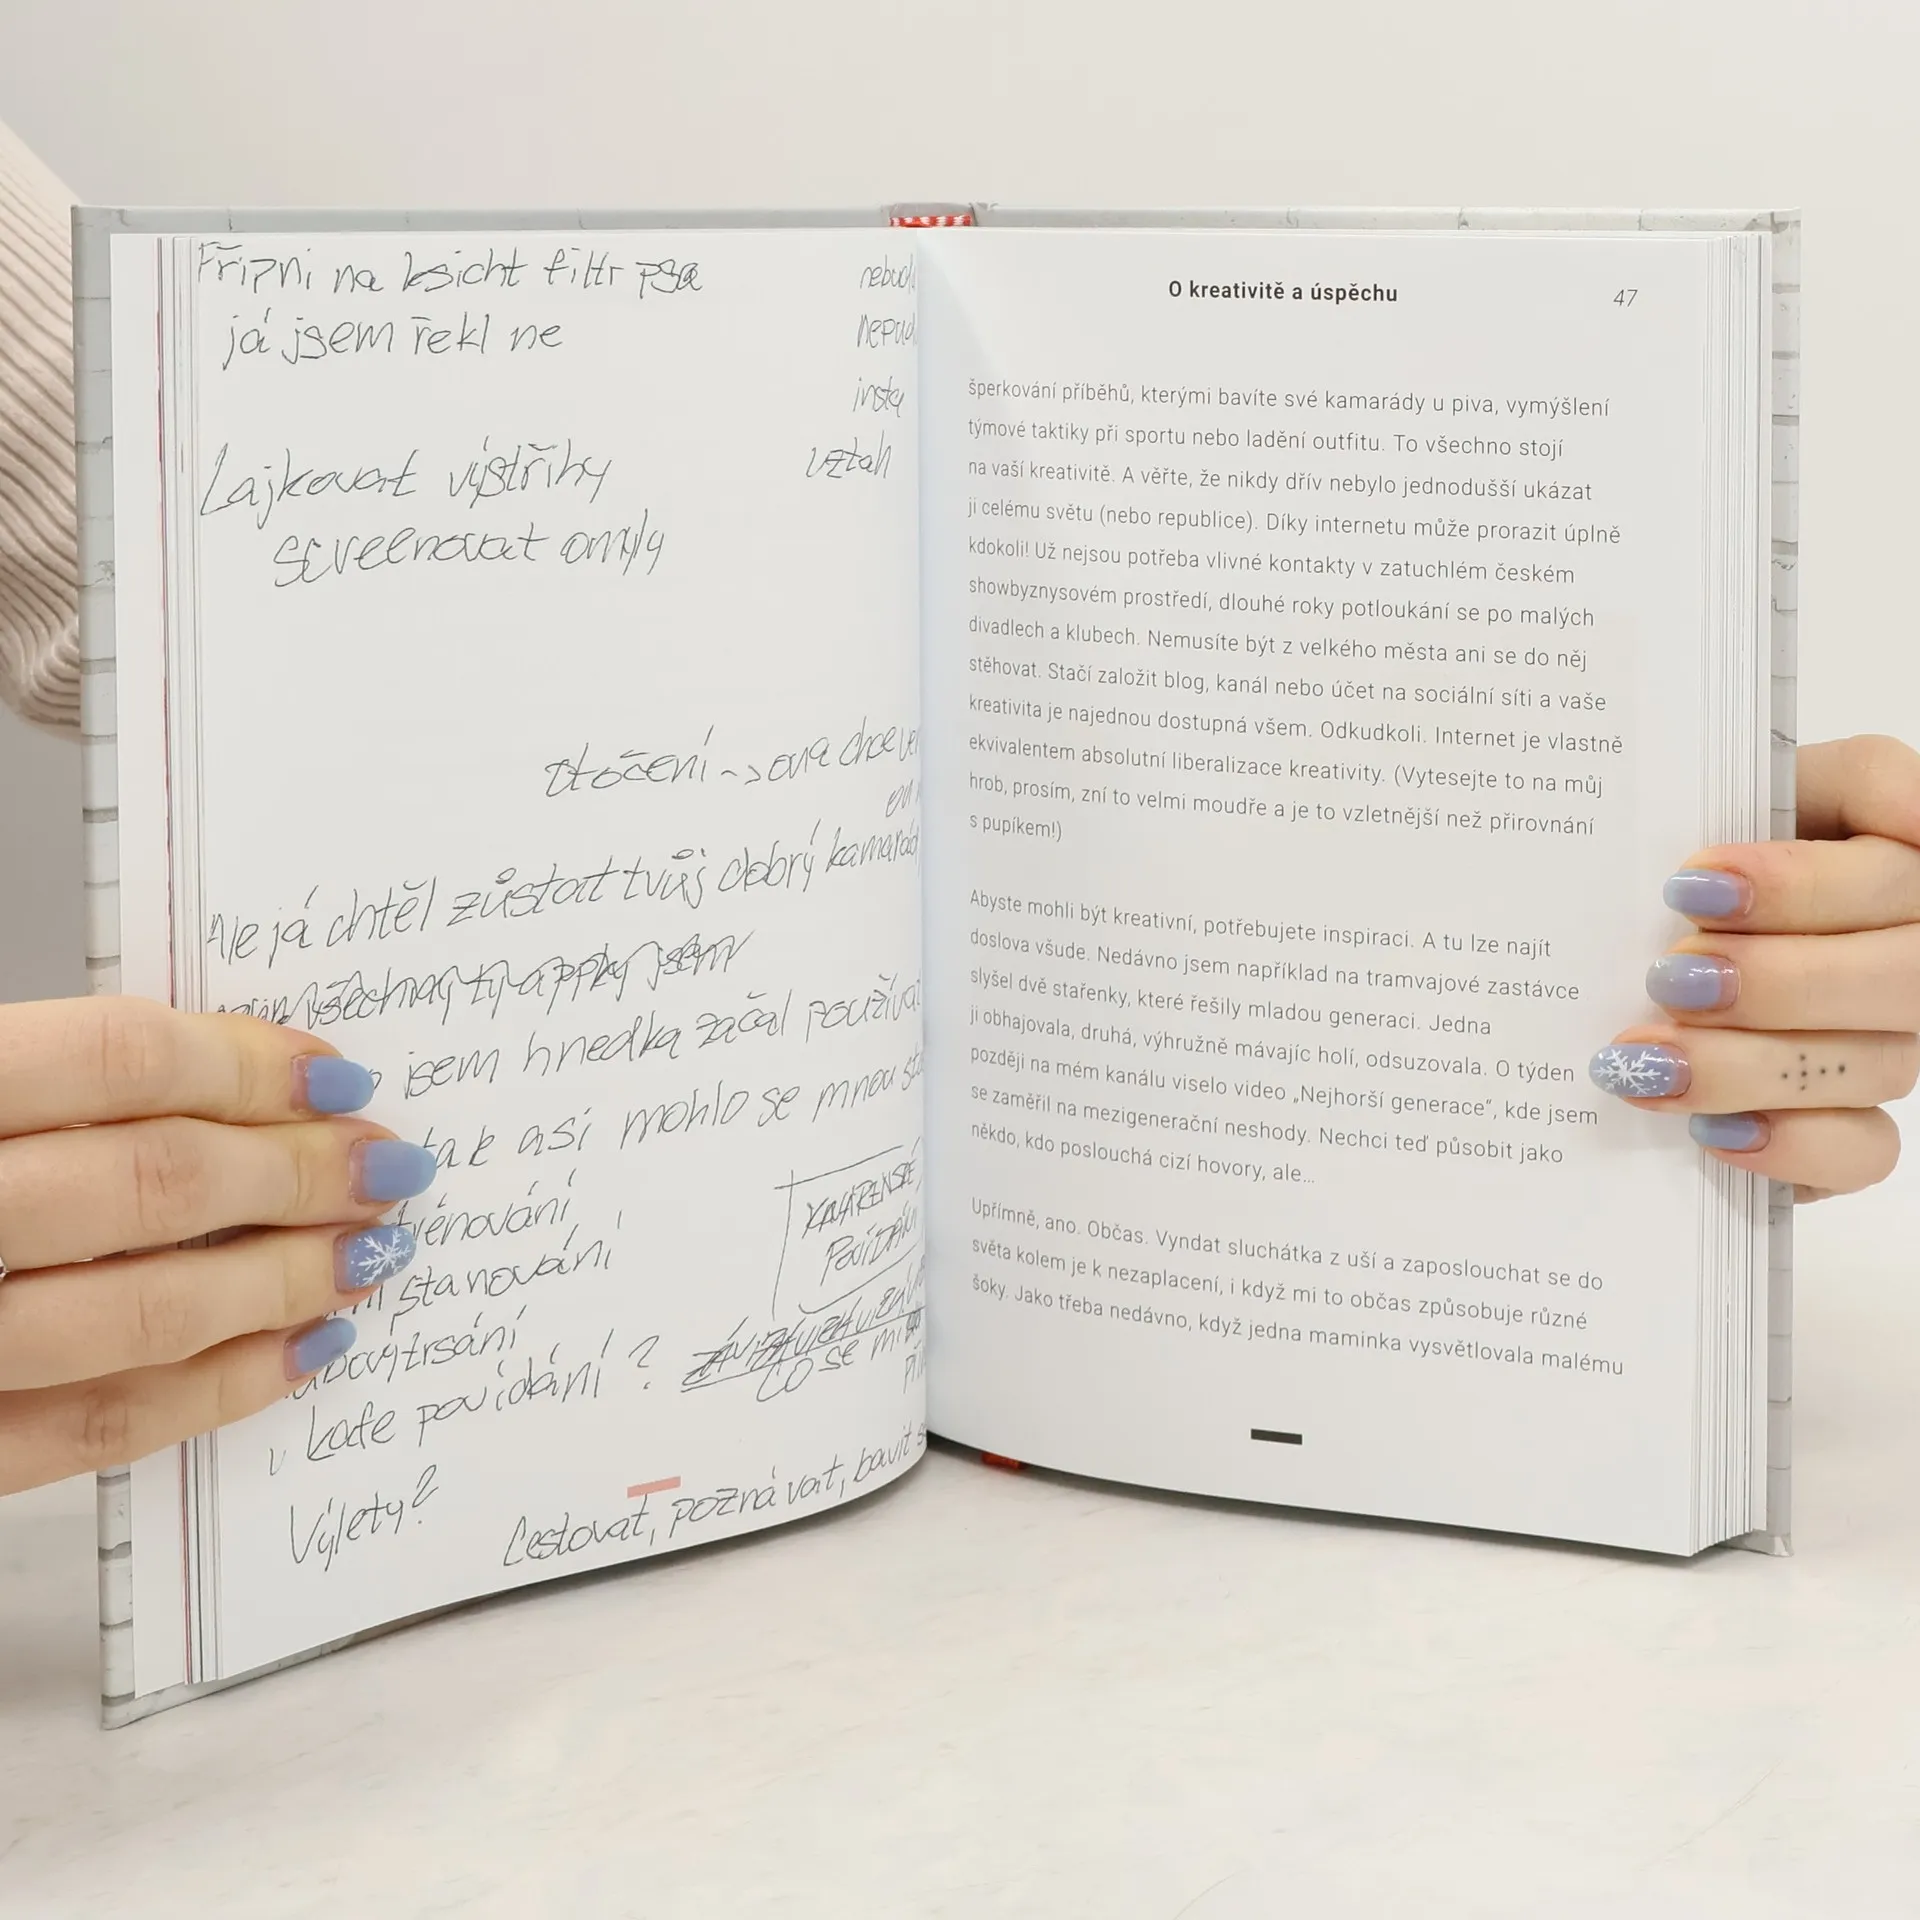 Připni na ksicht filtr psa
já jsem řekl ne
insta
vztah
Lajkovat výstřihy
screenovat omyly
otočení -> ona chce
Ne já chtěl zůstat tvůj dobrý kamarád
všechny ty appky jsem
jsem hnedka začal používat
tak asi mohlo se mnou
trénování
stanování
KAVÁRENSKÉ
POVÍDÁNÍ
v kafe povídání?
co se mi
Výlety?
Cestovat, poznávat, bavit
O kreativitě a úspěchu
47
šperkování příběhů, kterými bavíte své kamarády u piva, vymýšlení
týmové taktiky při sportu nebo ladění outfitu. To všechno stojí
na vaší kreativitě. A věřte, že nikdy dřív nebylo jednodušší ukázat
ji celému světu (nebo republice). Díky internetu může prorazit úplně
kdokoli! Už nejsou potřeba vlivné kontakty v zatuchlém českém
showbyznysovém prostředí, dlouhé roky potloukání se po malých
divadlech a klubech. Nemusíte být z velkého města ani se do něj
stěhovat. Stačí založit blog, kanál nebo účet na sociální síti a vaše
kreativita je najednou dostupná všem. Odkudkoli. Internet je vlastně
ekvivalentem absolutní liberalizace kreativity. (Vytesejte to na můj
hrob, prosím, zní to velmi moudře a je to vzletnější než přirovnání
s pupíkem!)
Abyste mohli být kreativní, potřebujete inspiraci. A tu lze najít
doslova všude. Nedávno jsem například na tramvajové zastávce
slyšel dvě stařenky, které řešily mladou generaci. Jedna
ji obhajovala, druhá, výhružně mávajíc holí, odsuzovala. O týden
později na mém kanálu viselo video „Nejhorší generace“, kde jsem
se zaměřil na mezigenerační neshody. Nechci teď působit jako
někdo, kdo poslouchá cizí hovory, ale...
Upřímně, ano. Občas. Vyndat sluchátka z uší a zaposlouchat se do
světa kolem je k nezaplacení, i když mi to občas způsobuje různé
šoky. Jako třeba nedávno, když jedna maminka vysvětlovala malému